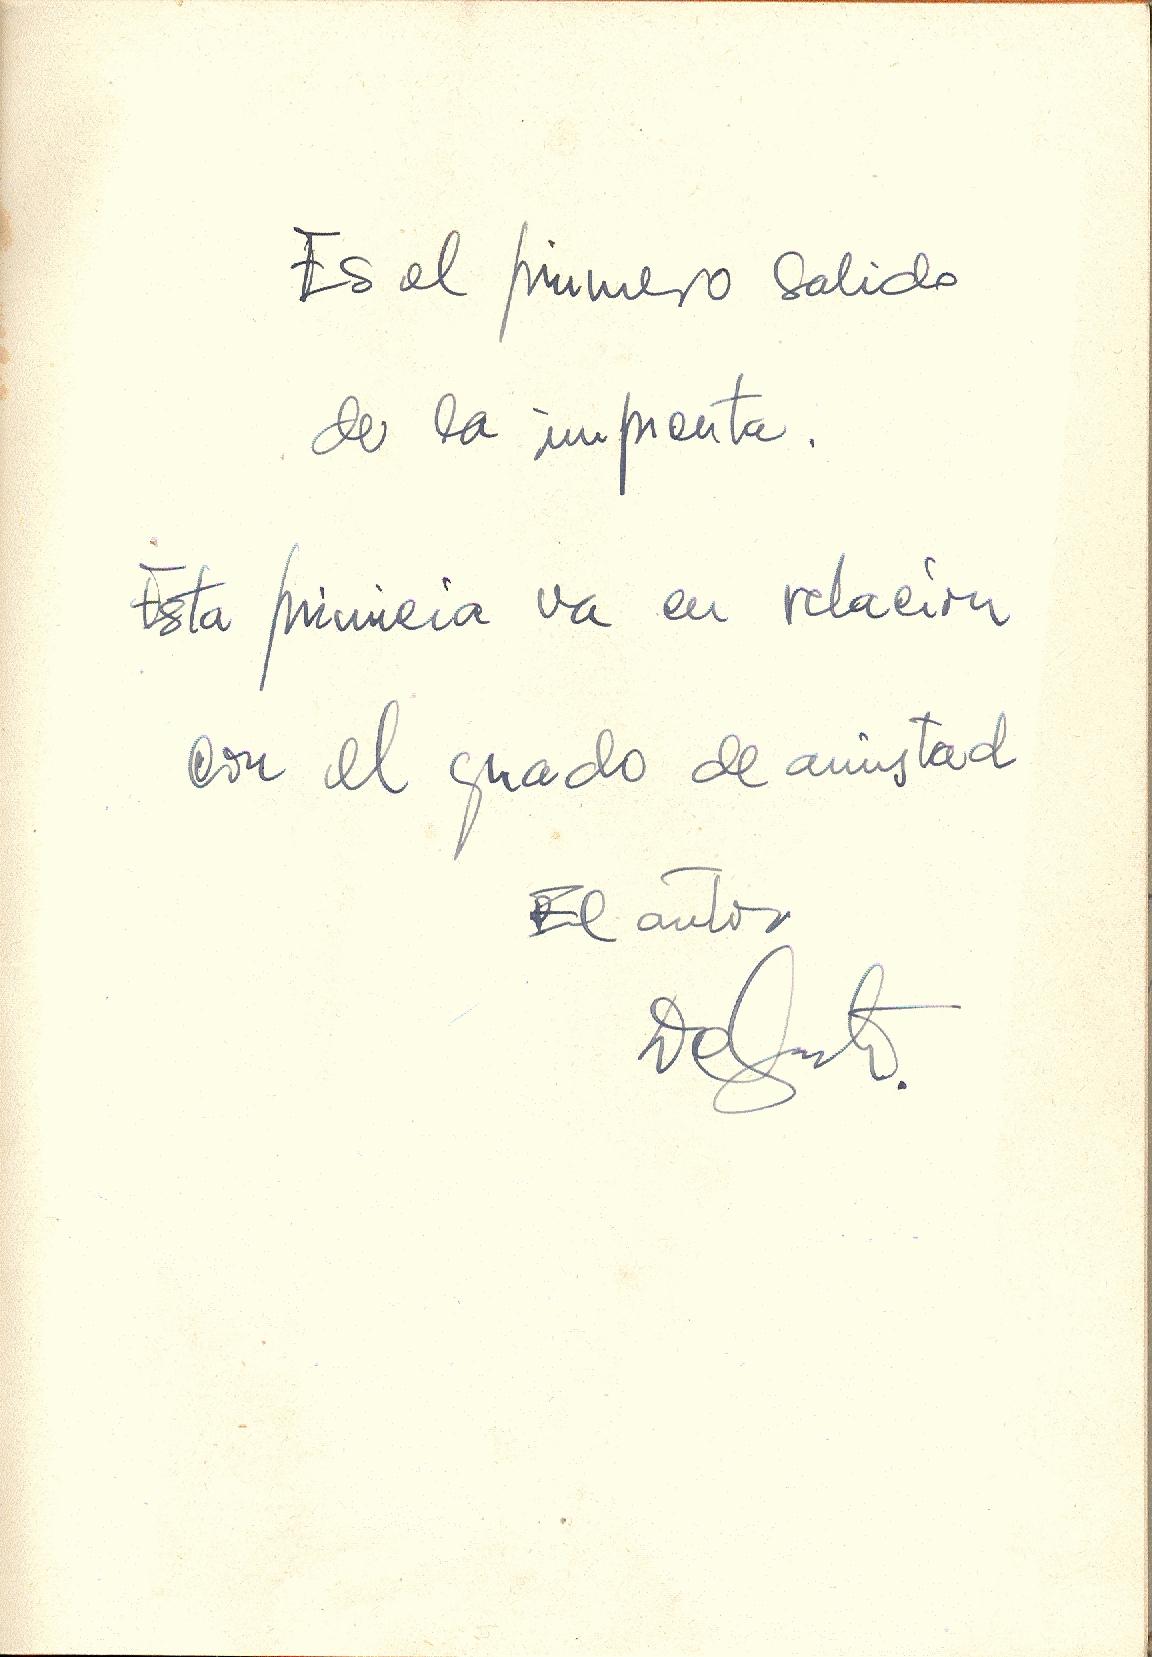 Es el primero salido
de la imprenta.
Esta primicia va en relacion
con el grado de amistad
El autor